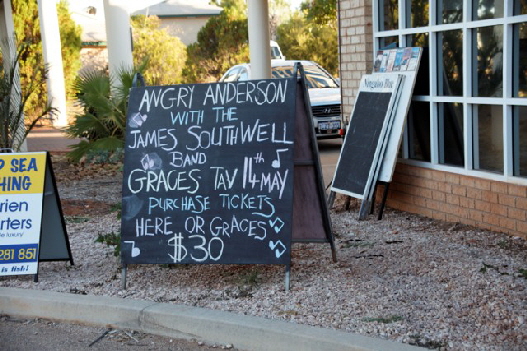 ANGRY ANDERSON
WITH THE
JAMES SOUTHWELL
BAND
GRACES TAV 14TH MAY
PURCHASE TICKETS
HERE OR GRACES
$30
P SEA
HING
rien
rters
281 851